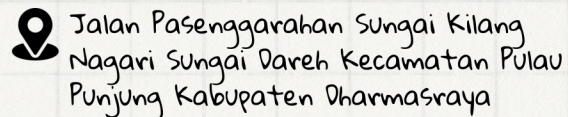 Jalan Pasenggarahan Sungai Kilang
Nagari Sungai Dareh Kecamatan Pulau
Punjung Kabupaten Dharmasraya